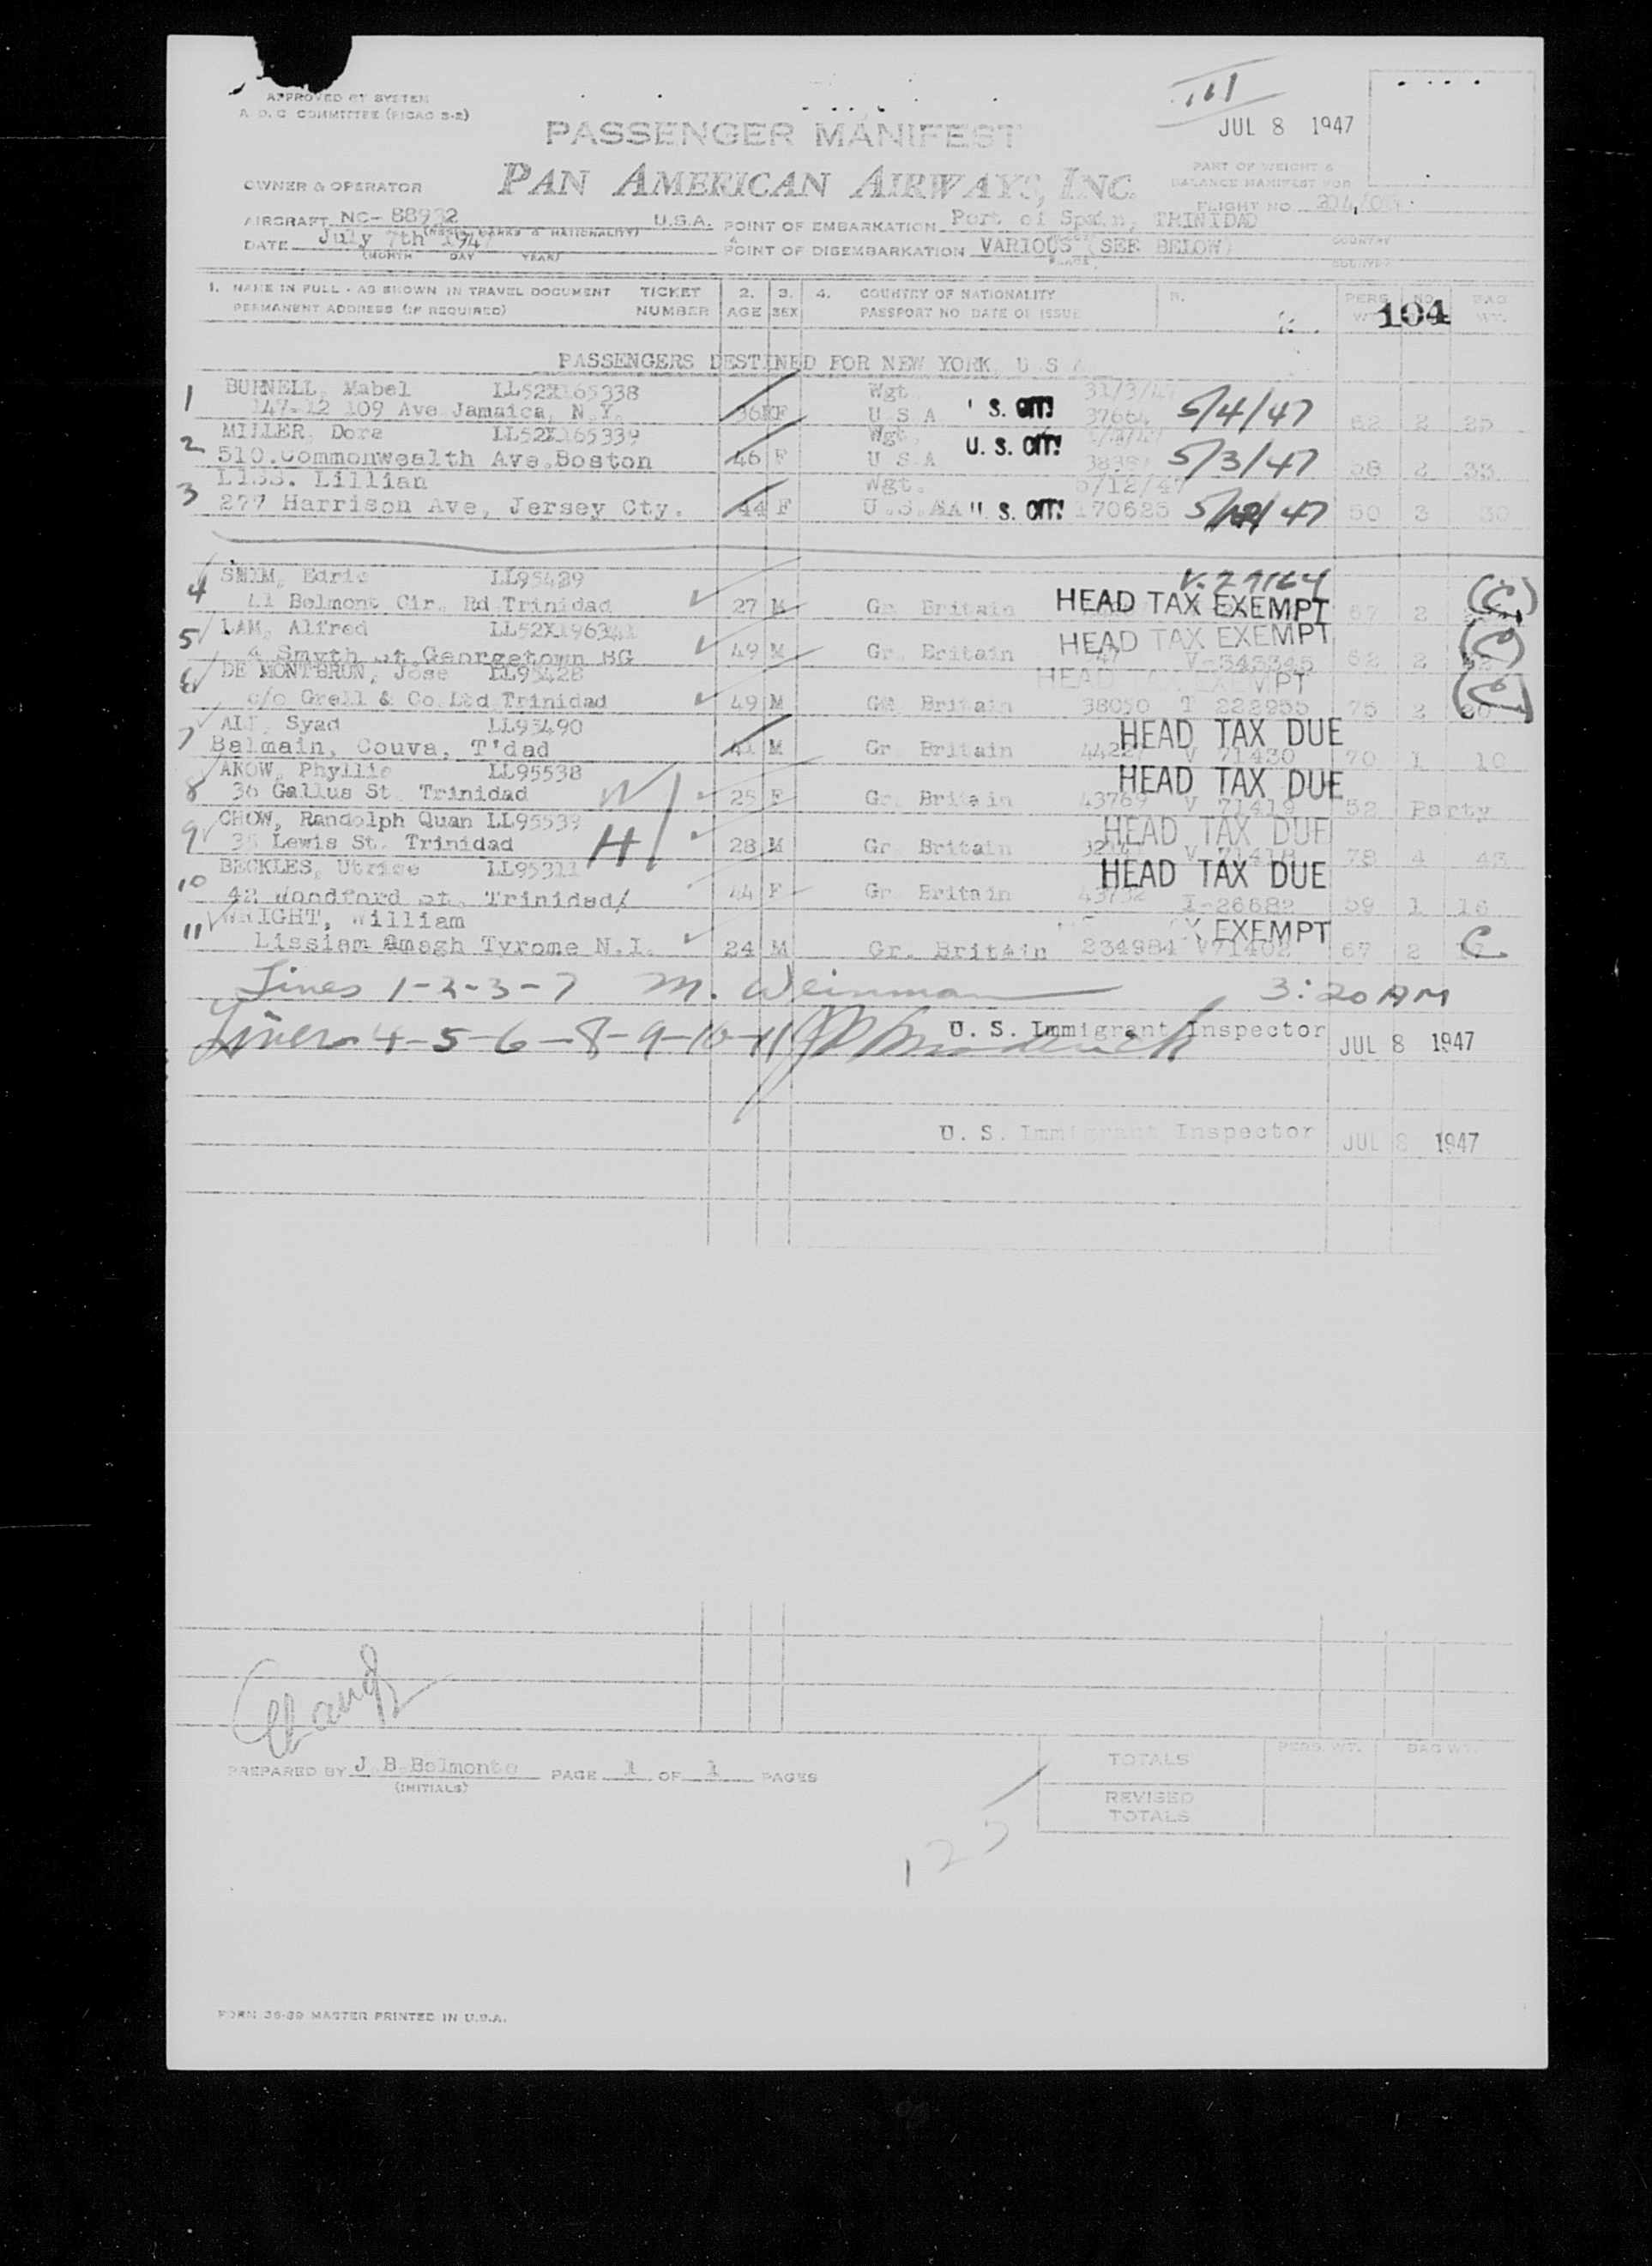 APPROVED BY SYSTEM
A. D. C COMMITTEE (PICAO 2-2)
JUL 8 1947
PASSENGER MANIFEST
PAN AMERICAN AIRWAYS, INC.
PART OF WEIGHT &
BALANCE MANIFEST FOR
OWNER & OPERATOR
FLIGHT NO
AIRCRAFT NC- 88932 U.S.A. POINT OF EMBARKATION Port of Spain, TRINIDAD
(NATIONALITY)
DATE July 7th 1947 POINT OF DISEMBARKATION VARIOUS (SEE BELOW) COUNTRY
(MONTH DAY YEAR)
1. NAME IN FULL - AS SHOWN IN TRAVEL DOCUMENT TICKET 2. 3. 4. COUNTRY OF NATIONALITY PERS NO BAG
PERMANENT ADDRESS (IF REQUIRED) NUMBER AGE SEX PASSPORT NO DATE OF ISSUE WT 104 WT.
PASSENGERS DESTINED FOR NEW YORK, U S A
1 BURNELL, Mabel LL52X165338 Wgt
147-12 109 Ave Jamaica, N.Y. 36 F U S A S. CIT! 37664 5/4/47 62 2 25
2 MILLER, Dora LL52X165339 Wgt.
510.Commonwealth Ave.Boston 46 F U S A U. S. CIT! 5/3/47 58 2 33
3 Lillian Wgt. 5/12/47
277 Harrison Ave, Jersey Cty. 44 F U.S.A U. S. CIT! 170625 5/12/47 50 3 30
4 Edric LL95429 V.27164
41 Belmont Cir. Rd Trinidad 27 M Gr. Britain HEAD TAX EXEMPT 67 2 (C)
5 LAM, Alfred
4 Smyth st.Georgetown BG 49 M Gr. Britain HEAD TAX EXEMPT V-545345 62 2 (C)
6 DE MONTBRUN, Jose LL95428 HEAD TAX EXEMPT
c/o Grell & Co Ltd Trinidad 49 M Britain 38050 T 222955 75 2 (C)
7 ALI, Syad LL93490 HEAD TAX DUE
Balmain, Couva, T'dad 41 M Gr Britain V 71430 70 1 10
8 AKOW, Phyllis LL95538 HEAD TAX DUE
36 Gallus St Trinidad 25 F Gr. Britain 43769 V 71419 52 Party
9 CHOW, Randolph Quan LL95539 HEAD TAX DUE
Lewis St. Trinidad H 28 M Gr Britain V 71418 78 4 43
10 BECKLES, Utrice LL95311 HEAD TAX DUE
42 Woodford st. Trinidad/ 44 F Gr Britain 43732 I-26682 59 1 16
11 WRIGHT, William EXEMPT
Lissiam Amagh Tyrome N.I. 24 M Gr. Britain 234984 V71402 67 2 C
Lines 1-2-3-7 M. Weinman 3:20 AM
Lines 4-5-6-8-9-10-11 U. S. Immigrant Inspector JUL 8 1947
U. S. Immigrant Inspector JUL 8 1947
PREPARED BY J B Belmonte PAGE 1 OF 1 PAGES
(INITIALS)
TOTALS PERS. WT. BAG WT.
REVISED
TOTALS
FORM 36-39 MASTER PRINTED IN U.S.A.